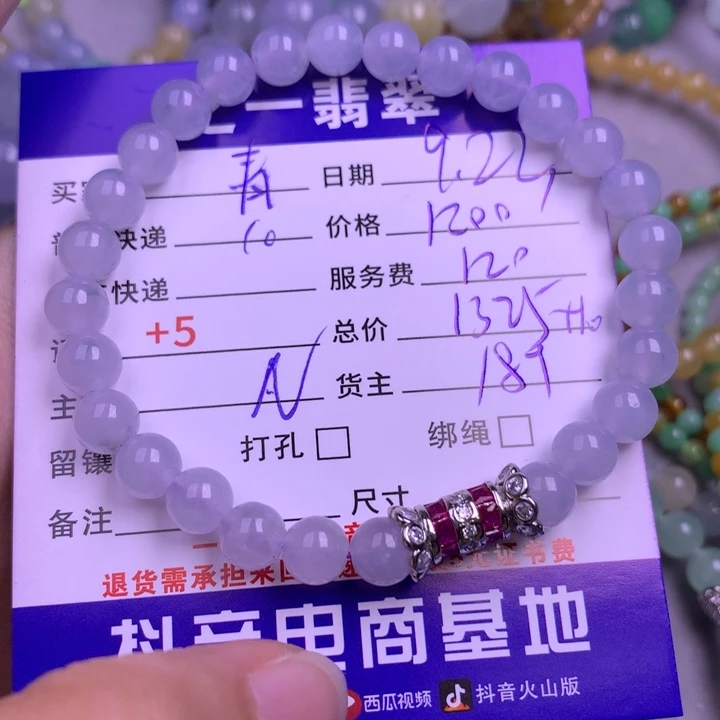 一翡翠
买 青 日期 9.22
快递 10 价格 1200
快递 服务费 120
+5 总价 1325+10
主 N 货主 189
留镶 打孔 □ 绑绳 □
备注 尺寸
退货需承担来回 证书费
抖音电商基地
西瓜视频 抖音火山版